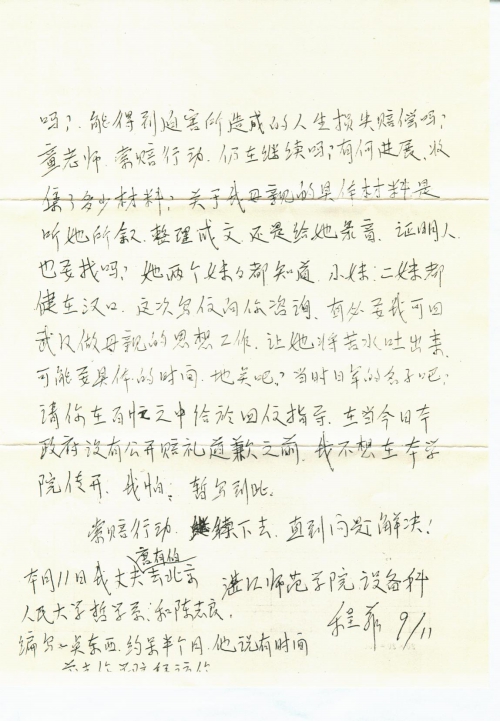 吗？能得到迫害所造成的人生损失赔偿吗？
童老师，索赔行动，仍在继续吗？有何进展，收
集了多少材料？关于我母亲的具体材料是
听她所叙，整理成文，还是给她录音，证明人
也要找吗？她两个妹妹都知道，小妹；二妹都
健在汉口，这次写信向你咨询，有必要我可回
武汉做母亲的思想工作，让她将苦水吐出来，
可能要具体的时间，地点吧？当时日军的
请你在百忙之中给於回信指导，在当今日本
政府没有公开赔礼道歉之前，我不想在本学
院传开，我怕；暂写到此。
索赔行动，继续下去，直到问题解决！
本月11日我丈夫去北京
湛江师范学院设备科
人民大学哲学系；和陈志良，
程 9/11
编写一类东西，约呆半个月，他说有时间